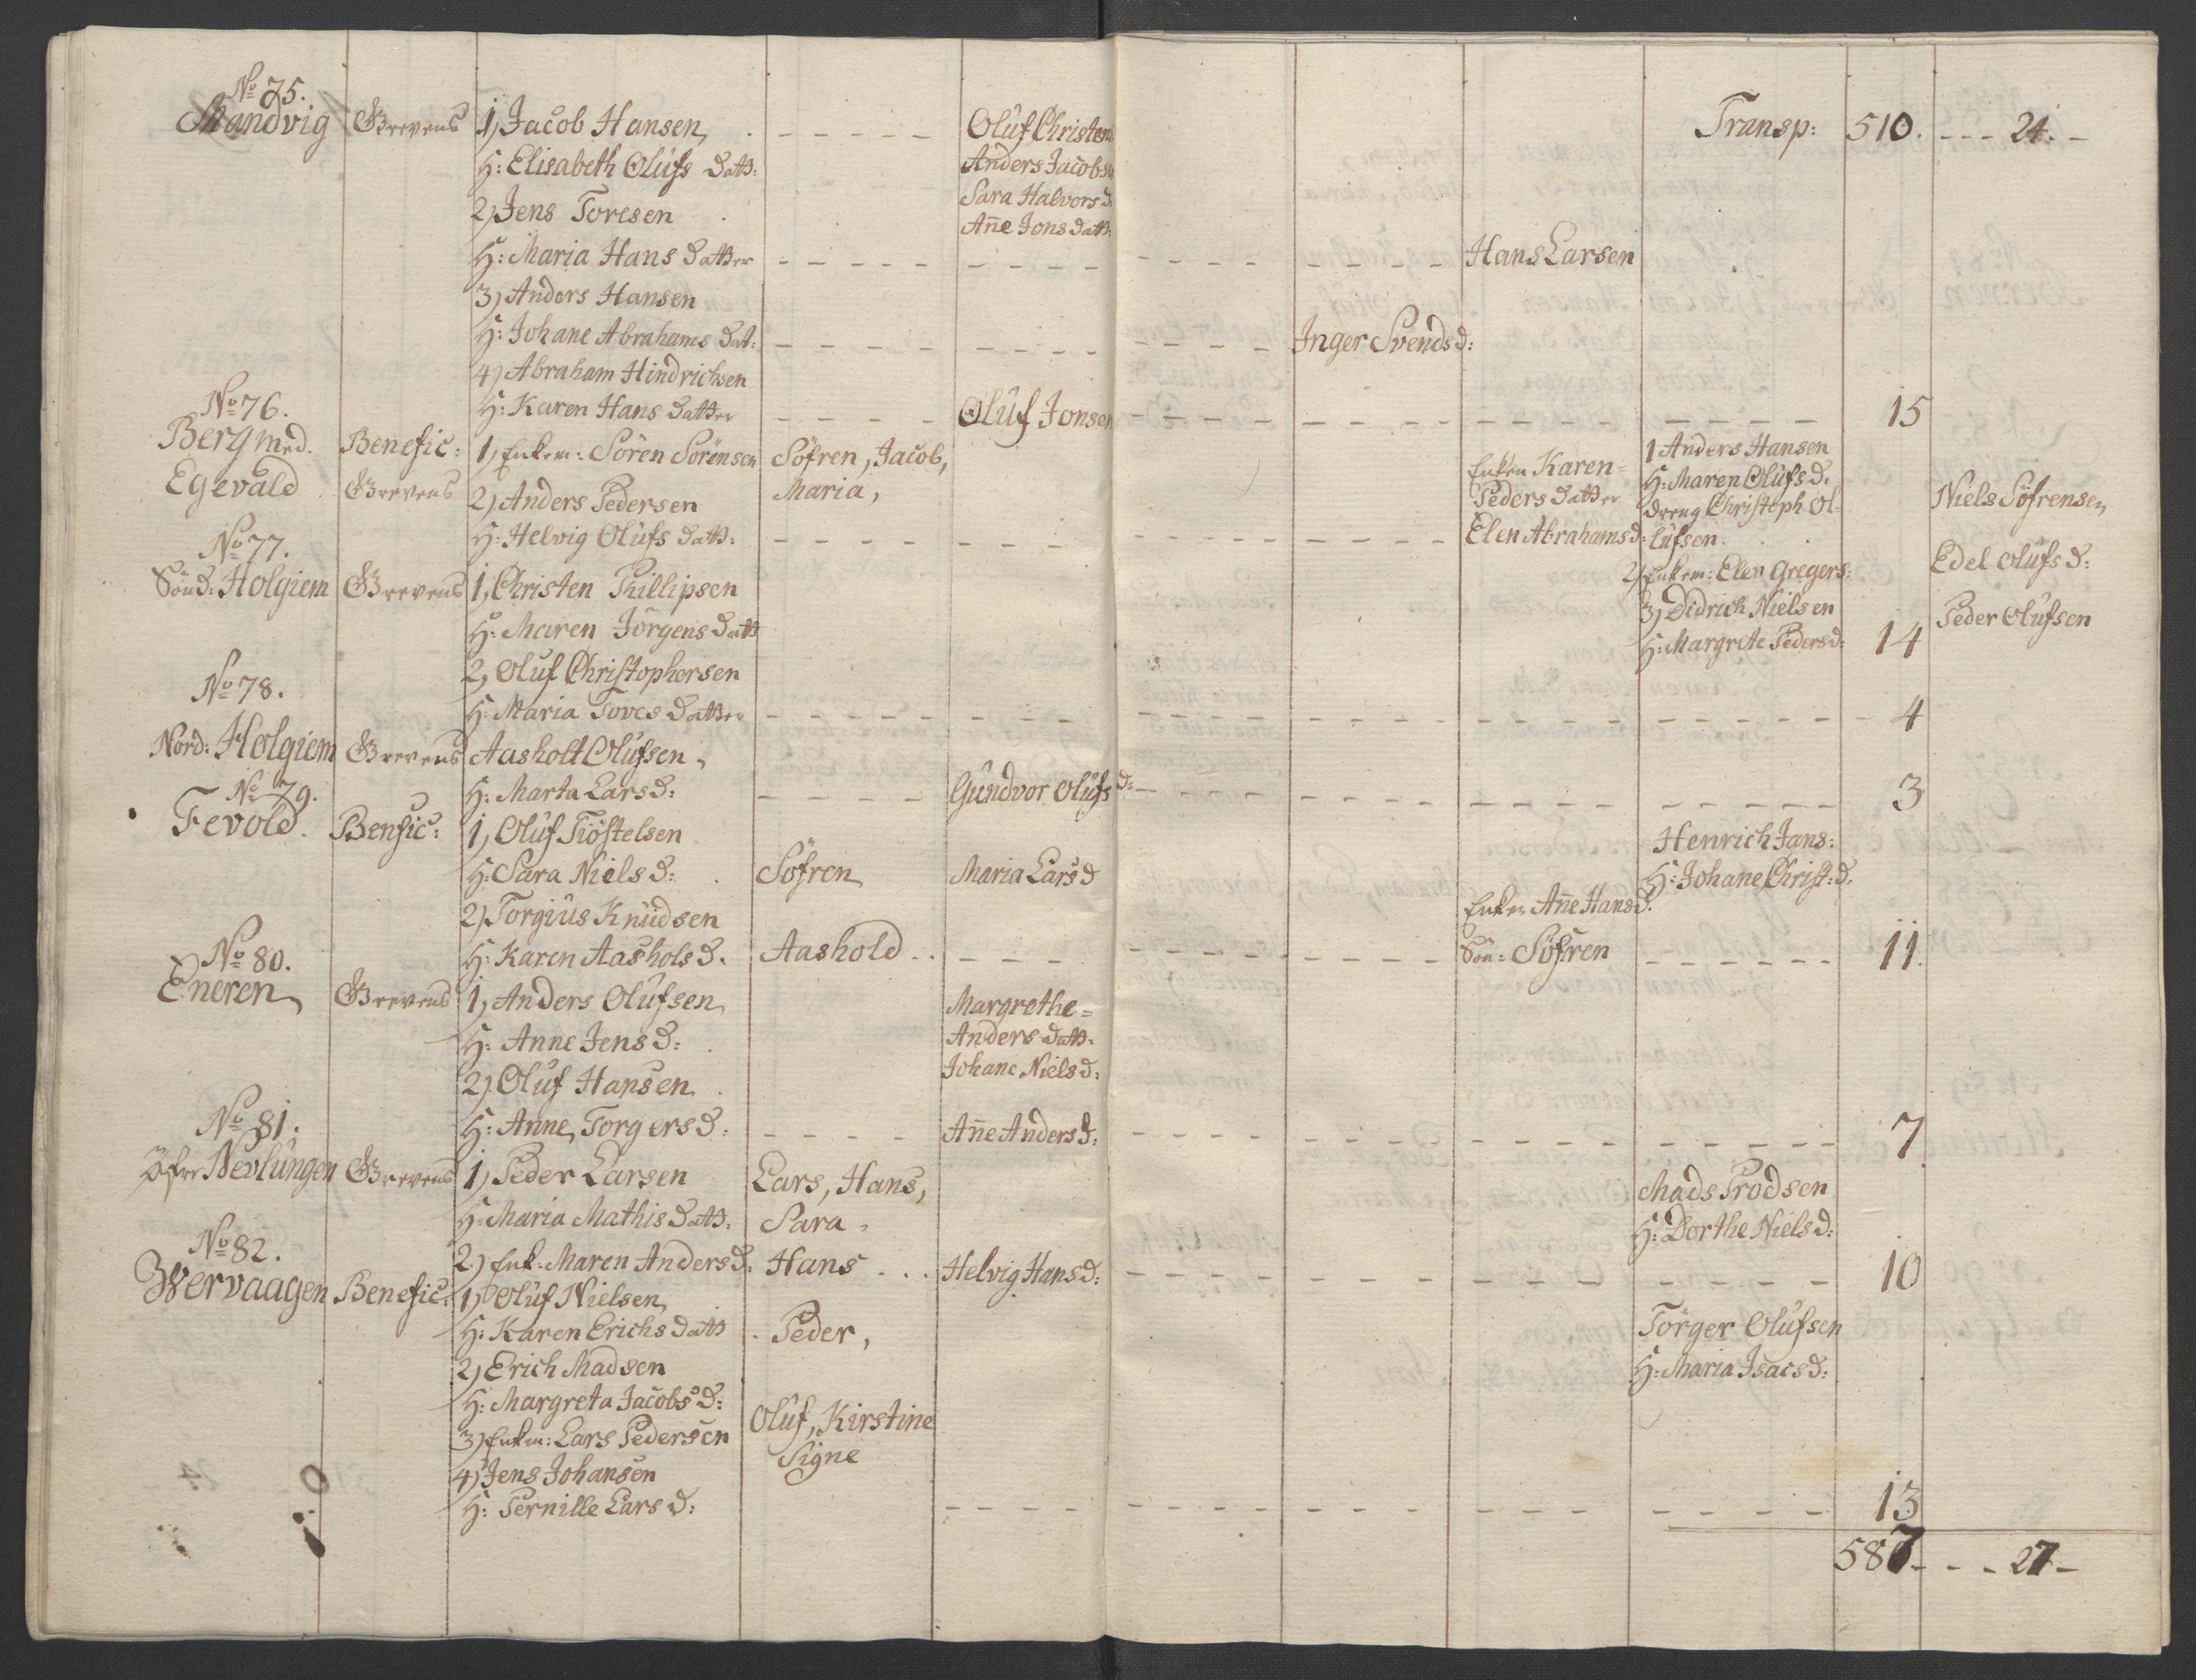 No 75.
Mandvig Grevens 1, Jacob Hansen, Oluf Christens Transp: 510. 24.
H: Elisabeth Olufs Datt: Anders Jacobs
2, Jens Toresen Sara Halvors d.
Añe Jons datt:
H: Maria Hans datter Hans Larsen
3) Anders Hansen
H: Johane Abrahams Dat: Inger Svends d:
4) Abraham Hindrichsen
H: Karen Hans datter Oluf Jonsen 15
No 76.
Berg med. Benefic: 1, Enkem: Sören Sörensen Söfren, Jacob, Enken Karen= 1 Anders Hansen
Egevald Grevens 2) Anders Pedersen Maria, Peders datter H: Maren Olufs d. Niels Söfrensen
dreng Christoph Ol-
H: Helvig Olufs datt: Elen Abrahams d: lufsen.
No 77.
2) Enkem: Elev Gregers: Edel Olufs d:
Sönd: Holgiem Grevens 1, Christen Phillipsen 3) Didrich Nielsen Peder Olufsen
H: Maren Jörgens datt H: Margrete Peders d: 14
2, Oluf Christophersen
H: Maria Toves datter 4
No 78.
Nord: Holgiem Grevens Aasholt Olufsen,
H: Marta Lars d: Gundvor Olufs d: 3
No 79.
Fevold. Benefic: 1, Oluf Tiöstelsen Henrich Jans:
H: Sara Niels d: Söfren Maria Lars d H: Johane Christ: d.
2) Torgius Knudsen Enken Añe Hans d.
H: Karen Aashols d. Aashold Sön= Söfren 11.
No 80.
Eneren Grevens 1, Anders Olufsen Margrethe=
H: Anne Jens d: Anders datt:
2) Oluf Hansen Johane Niels d:
H: Anne Torgers d: Añe Anders d: 7
No 81.
Öfre Nevlungen Grevens 1, Peder Larsen Lars, Hans, Mads Trodsen
H: Maria Mathis datt: Sara, H: Dorthe Niels d:
2) Enk: Maren Anders d: Hans Helvig Hans d: 10
No 82.
Wervaagen Benefic: 1) Oluf Nielsen Törger Olufsen
H: Karen Erichs datt Peder, H: Maria Isacs d:
2) Erich Madsen
H: Margreta Jacobs d:
3) Enkm: Lars Pedersen Oluf, Kirstine
4) Jens Johansen Signe
H: Pernille Lars d: 13
587 27